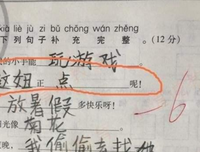 xià liè jù zi bǔ chōng wán zhěng
下列句子补充完整。(12分)
的小手能 玩游戏
这妞正点 呢!
放暑假 多快乐呀!
光像 菊花
晚, 我偷偷去找她
-6